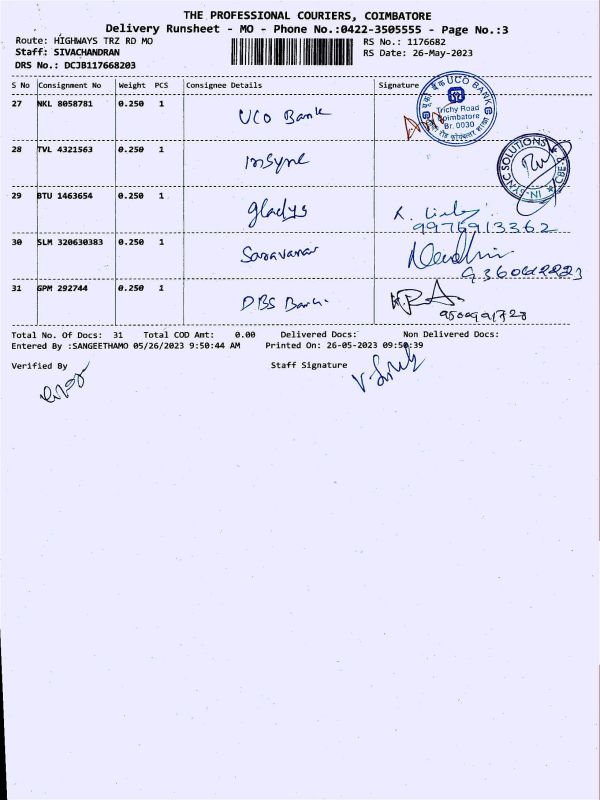 THE PROFESSIONAL COURIERS, COIMBATORE
Delivery Runsheet - MO - Phone No.:0422-3505555 - Page No.:3
Route: HIGHWAYS TRZ RD MO RS No.: 1176682
Staff: SIVACHANDRAN RS Date: 26-May-2023
DRS No.: DCJB117668203
S No Consignment No Weight PCS Consignee Details Signature
27 NKL 8058781 0.250 1 UCO Bank
UCO BANK
Trichy Road
Coimbatore
Br. 0030
28 TVL 4321563 0.250 1 insync
IN-SYNC SOLUTIONS
29 BTU 1463654 0.250 1 gladys
9976913362
30 SLM 320630383 0.250 1 Saravanan
31 GPM 292744 0.250 1 DBS Bank.
Total No. Of Docs: 31 Total COD Amt: 0.00 Delivered Docs: Non Delivered Docs:
Entered By :SANGEETHAMO 05/26/2023 9:50:44 AM Printed On: 26-05-2023 09:50:39
Verified By Staff Signature